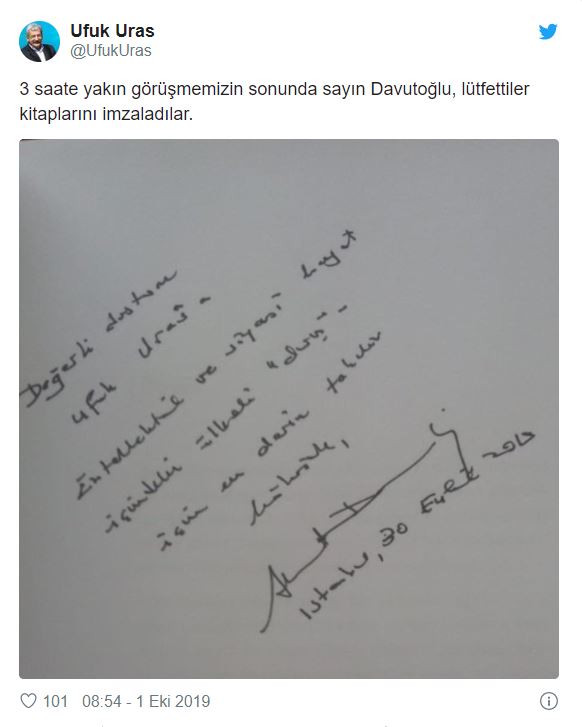 Ufuk Uras
@UfukUras
3 saate yakın görüşmemizin sonunda sayın Davutoğlu, lütfettiler
kitaplarını imzaladılar.
Değerli dostum
Ufuk Uras'a
Entellektüel ve siyasi hayat
içindeki ilkeli "duruş"
için en derin takdir
İstanbul, 30 Eylül 2019
101 08:54 - 1 Eki 2019